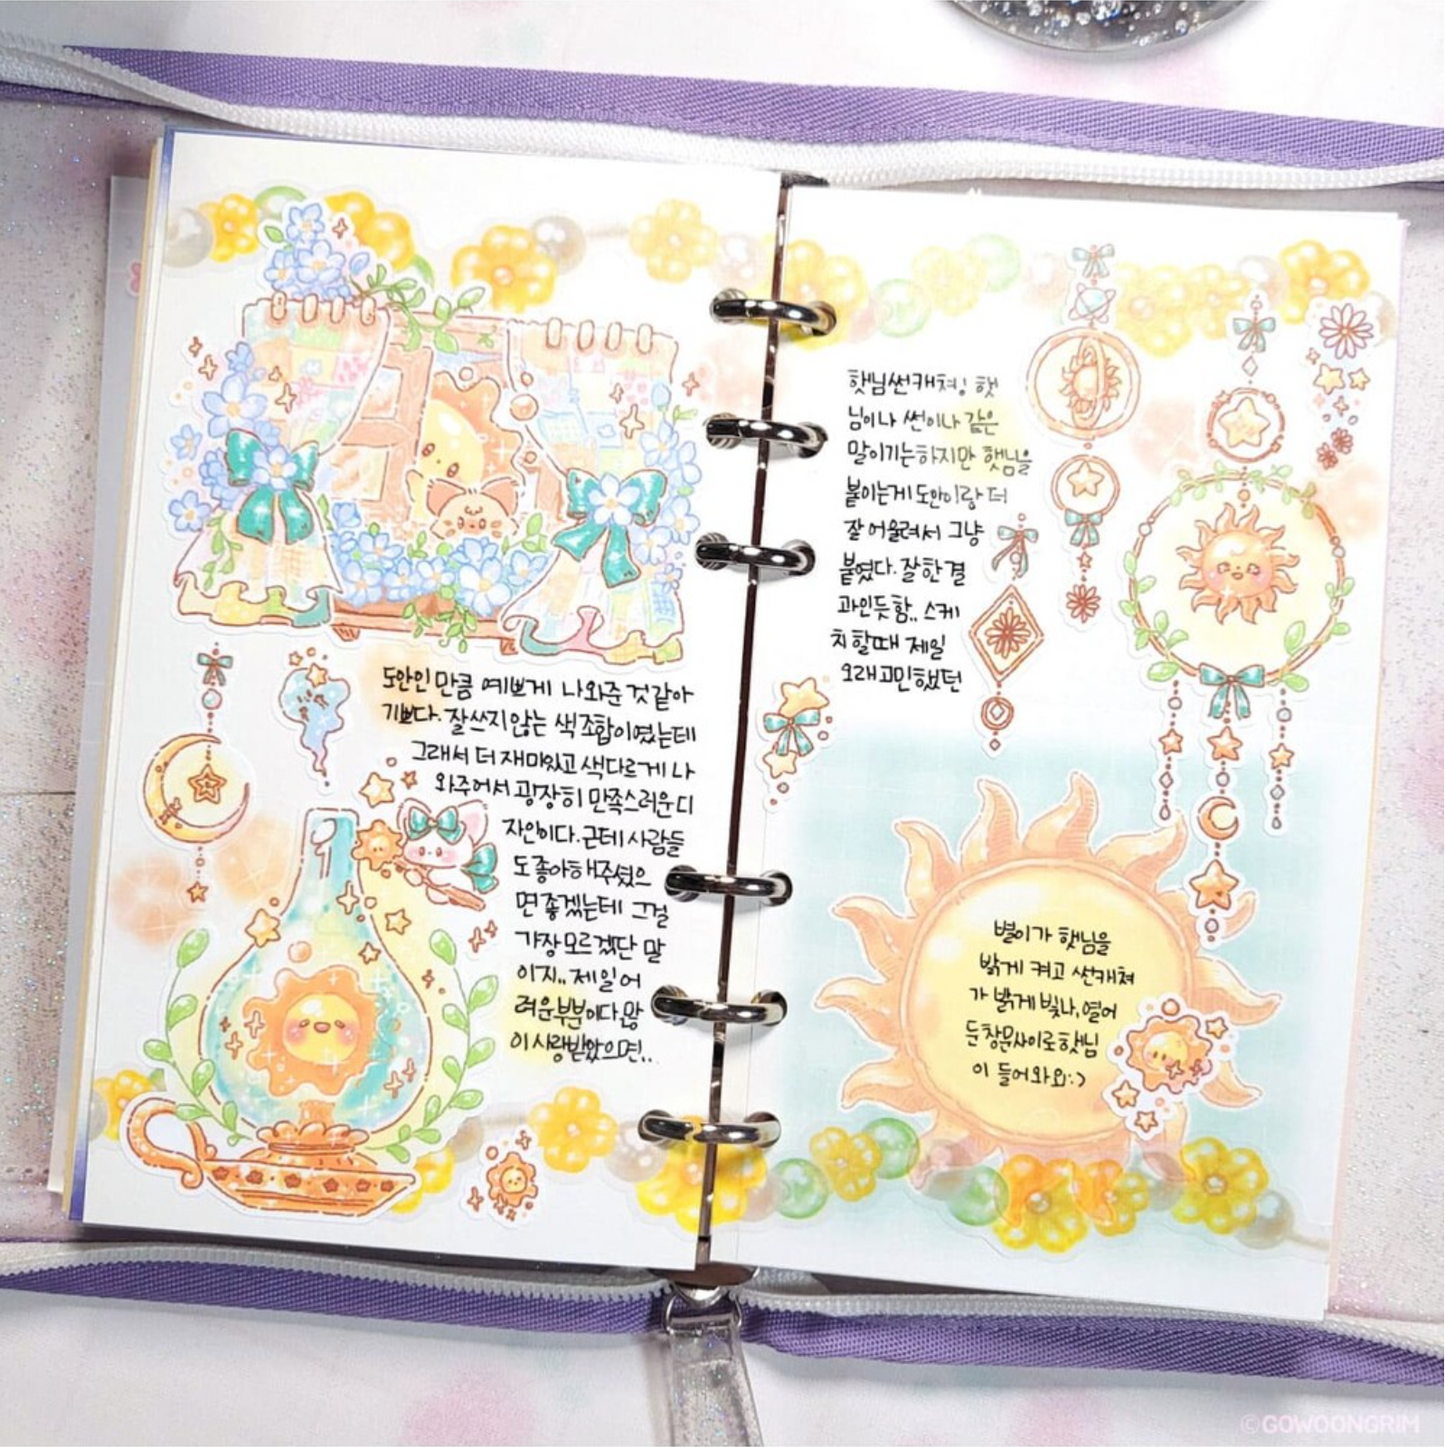 도안인 만큼 예쁘게 나와준 것 같아
기쁘다. 잘 쓰지 않는 색조합이였는테
그래서 더 재미있고 색다르게 나
와주어서 굉장히 만족스러운 디
자인이다. 근테 사람들
도 좋아해주셨으
면 좋겠는테 그걸
가장 모르겠단 말
이지.. 제일 어
려운부분이다. 많
이 사랑받았으면..
햇님썬캐쳐! 햇
님이나 썬이나 같은
말이기는하지만 햇님을
붙이는게 도안이랑 더
잘 어울려서 그냥
붙였다. 잘한 결
과인듯함.. 스케
치 할때 제일
오래 고민했던
별이가 햇님을
밝게 켜고 썬캐쳐
가 밝게 빛나, 열어
둔 창문사이로 햇님
이 들어와요:)
©GOWOONGRIM